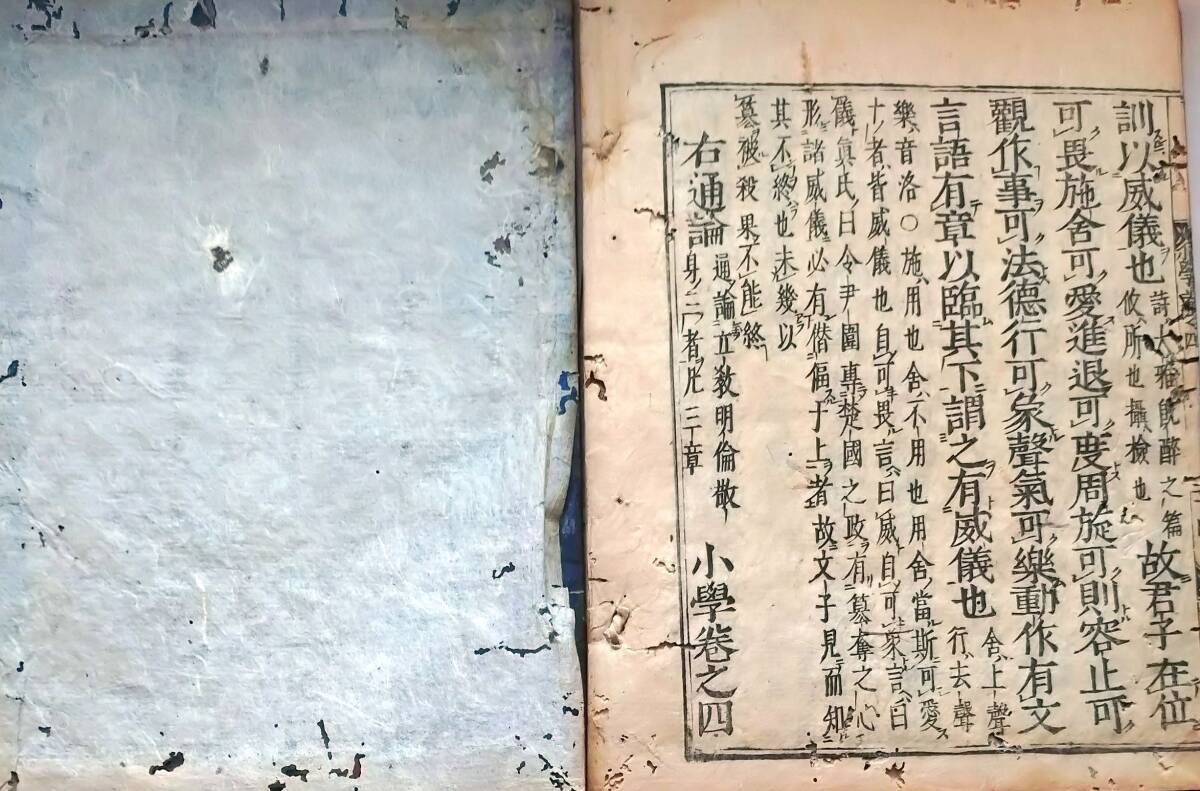 訓以威儀也詩大雅既醉之篇攸所也攝檢也故君子在位
可畏施舍可愛進退可度周旋可則容止可
觀作事可法德行可象聲氣可樂動作有文
言語有章以臨其下謂之有威儀也舍上聲行去聲
樂音洛○施用也舍不用也用舍當斯可愛
十者皆威儀也自可畏言曰威自可象言曰
儀真氏曰令尹圍專楚國之政有簒奪之心
形諸威儀必有僭偪于上者故文子見而知
其不終也未幾以
簒被殺果不能終
右通論通論立敎明倫敬身三者凡三章 小學卷之四